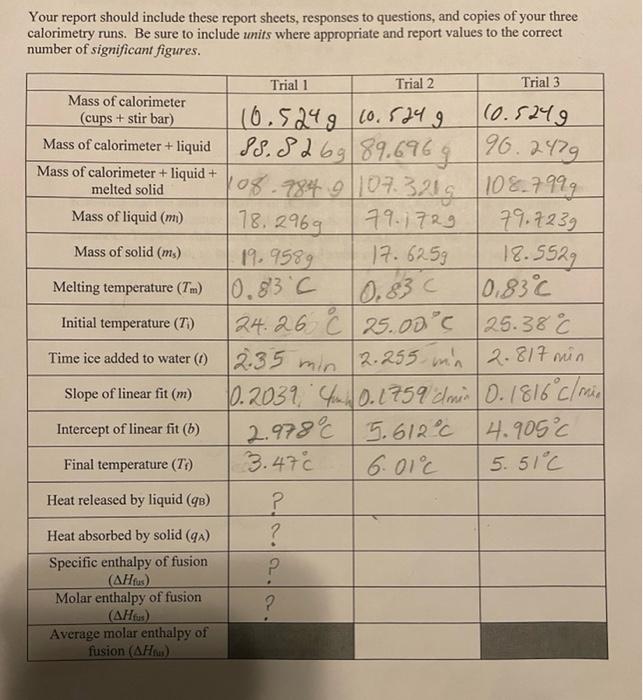 Your report should include these report sheets, responses to questions, and copies of your three
calorimetry runs. Be sure to include units where appropriate and report values to the correct
number of significant figures.
Trial 1 Trial 2 Trial 3
Mass of calorimeter
(cups + stir bar) 10.524g 10.524 g 10.524g
Mass of calorimeter + liquid 88.826g 89.696 g 90.247g
Mass of calorimeter + liquid +
melted solid 108.784 g 107.321g 108.799g
Mass of liquid (ml) 78.296g 79.172g 79.723g
Mass of solid (ms) 19.958g 17.625g 18.552g
Melting temperature (Tm) 0.83°C 0.83 C 0.83°C
Initial temperature (Ti) 24.26 °C 25.00°C 25.38°C
Time ice added to water (t) 2.35 min 2.255 min 2.817 min
Slope of linear fit (m) 0.2039 °C/min 0.1759°C/min 0.1816°C/min
Intercept of linear fit (b) 2.978°C 5.612°C 4.905°C
Final temperature (Tf) 3.47°C 6.01°C 5.51°C
Heat released by liquid (qB) ?
Heat absorbed by solid (qA) ?
Specific enthalpy of fusion
(ΔHfus) ?
Molar enthalpy of fusion
(ΔHfus) ?
Average molar enthalpy of
fusion (ΔHfus)